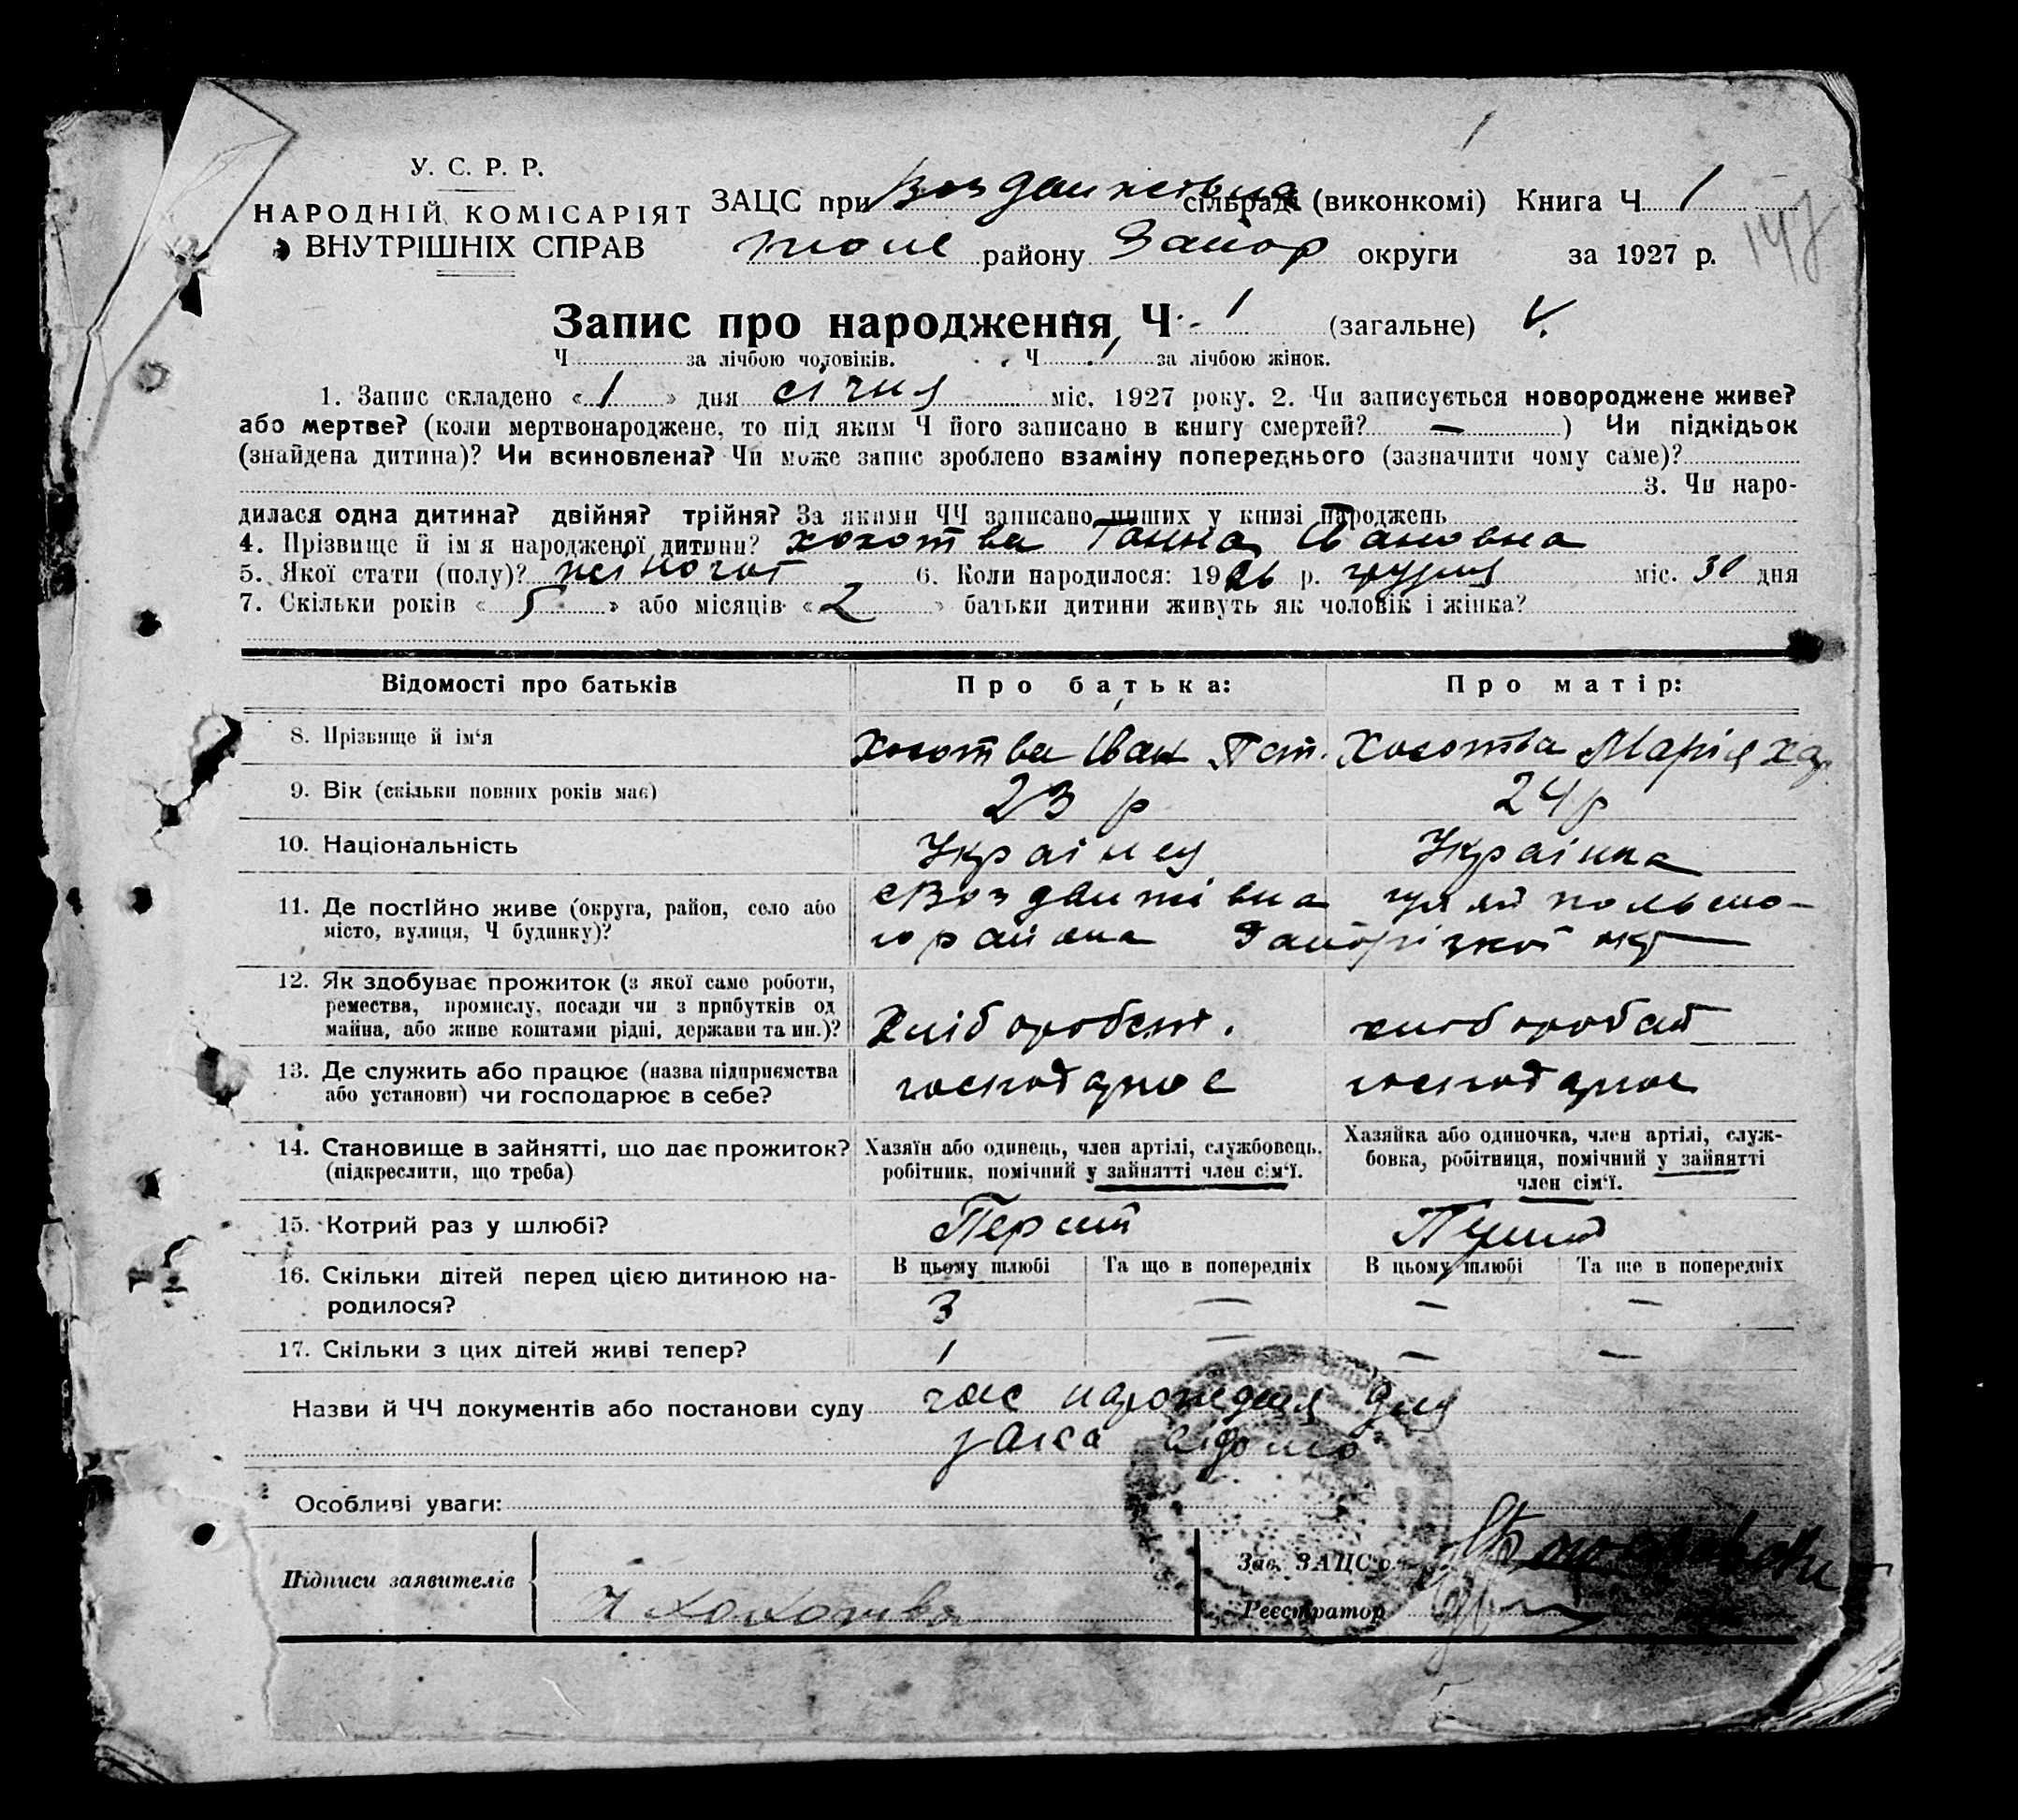 У. С. Р. Р.
НАРОДНІЙ КОМІСАРІЯТ
ВНУТРІШНІХ СПРАВ
ЗАЦС при сільраді (виконкомі) Книга Ч 1
району Запор округи за 1927 р.
147
Запис про народження, Ч 1 (загальне) V.
Ч за лічбою чоловіків. Ч 1 за лічбою жінок.
1. Запис складено « 1 » дня січня міс. 1927 року. 2. Чи записується новороджене живе?
або мертве? (коли мертвонароджене, то під яким Ч його записано в книгу смертей? — ) Чи підкідьок
(знайдена дитина)? Чи всиновлена? Чи може запис зроблено взаміну попереднього (зазначити чому саме)?
3. Чи наро-
дилася одна дитина? двійня? трійня? За якими ЧЧ записано инших у книзі народжень
4. Прізвище й ім'я народженої дитини? Хохотва Ганна Івановна
5. Якої стати (полу)? жіночої 6. Коли народилося: 1926 р. грудня міс. 30 дня
7. Скільки років « 5 » або місяців « 2 » батьки дитини живуть як чоловік і жінка?
Відомості про батьків Про батька: Про матір:
8. Прізвище й ім'я Хохотва Іван Хохотва Марія
9. Вік (скільки повних років має) 23 р 24 р
10. Національність Українец Українка
11. Де постійно живе (округа, район, село або
місто, вулиця, Ч будинку)?
с Воздвижівка Гуляйпольсько-
го района Запорізкої окр
12. Як здобуває прожиток (з якої саме роботи,
ремества, промислу, посади чи з прибутків од
майна, або живе коштами рідні, держави та ин.)? Хлібороб хлібороб
13. Де служить або працює (назва підприємства
або установи) чи господарює в себе? господарює господарює
14. Становище в зайнятті, що дає прожиток?
(підкреслити, що треба)
Хазяїн або одинець, член артілі, службовець,
робітник, помічний у зайнятті член сім'ї.
Хазяйка або одиночка, член артілі, служ-
бовка, робітниця, помічний у зайнятті
член сім'ї.
15. Котрий раз у шлюбі? Перший
16. Скільки дітей перед цією дитиною на-
родилося?
В цьому шлюбі Та ще в попередніх В цьому шлюбі Та ще в попередніх
3 — — —
17. Скільки з цих дітей живі тепер? 1 — — —
Назви й ЧЧ документів або постанови суду
Особливі уваги:
Підписи заявителів Хохотва
Зав. ЗАЦС'ом
Реєстратор